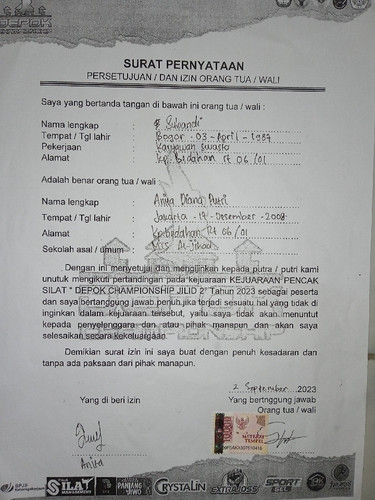 DEPOK
SURAT PERNYATAAN
PERSETUJUAN / DAN IZIN ORANG TUA / WALI
Saya yang bertanda tangan di bawah ini orang tua / wali :
Nama lengkap :
Tempat / Tgl lahir : Bogor - 03 - April - 1987
Pekerjaan : Karyawan swasta
Alamat : kp. Bedahan Rt 06 /01
Adalah benar orang tua / wali :
Nama lengkap : Anita Diana Putri
Tempat / Tgl lahir : Jakarta - 19 - Desember - 2008
Alamat : kp.bedahan Rt 06 /01
Sekolah asal / umum : Mts Al-jihad
Dengan ini menyetujui dan mengijinkan kepada putra / putri kami
unutuk mengikuti pertandingan pada kejuaraan KEJUARAAN PENCAK
SILAT " DEPOK CHAMPIONSHIP JILID 2" Tahun 2023 sebagai peserta
dan saya bertanggung jawab penuh jika terjadi sesuatu hal yang tidak di
inginkan dalam kejuaraan tersebut, yaitu saya tidak akan menuntut
kepada penyelenggara dan atau pihak manapun dan akan saya
selesaikan secara kekeluargaan.
Demikian surat izin ini saya buat dengan penuh kesadaran dan
tanpa ada paksaan dari pihak manapun.
2 September 2023
Yang di beri izin
Yang bertnggung jawab
Orang tua / wali
METERAI
TEMPEL
Anita
SILAT
PANJANG
JIWO
CRYSTALIN
EXTRAJOSS
SPORT